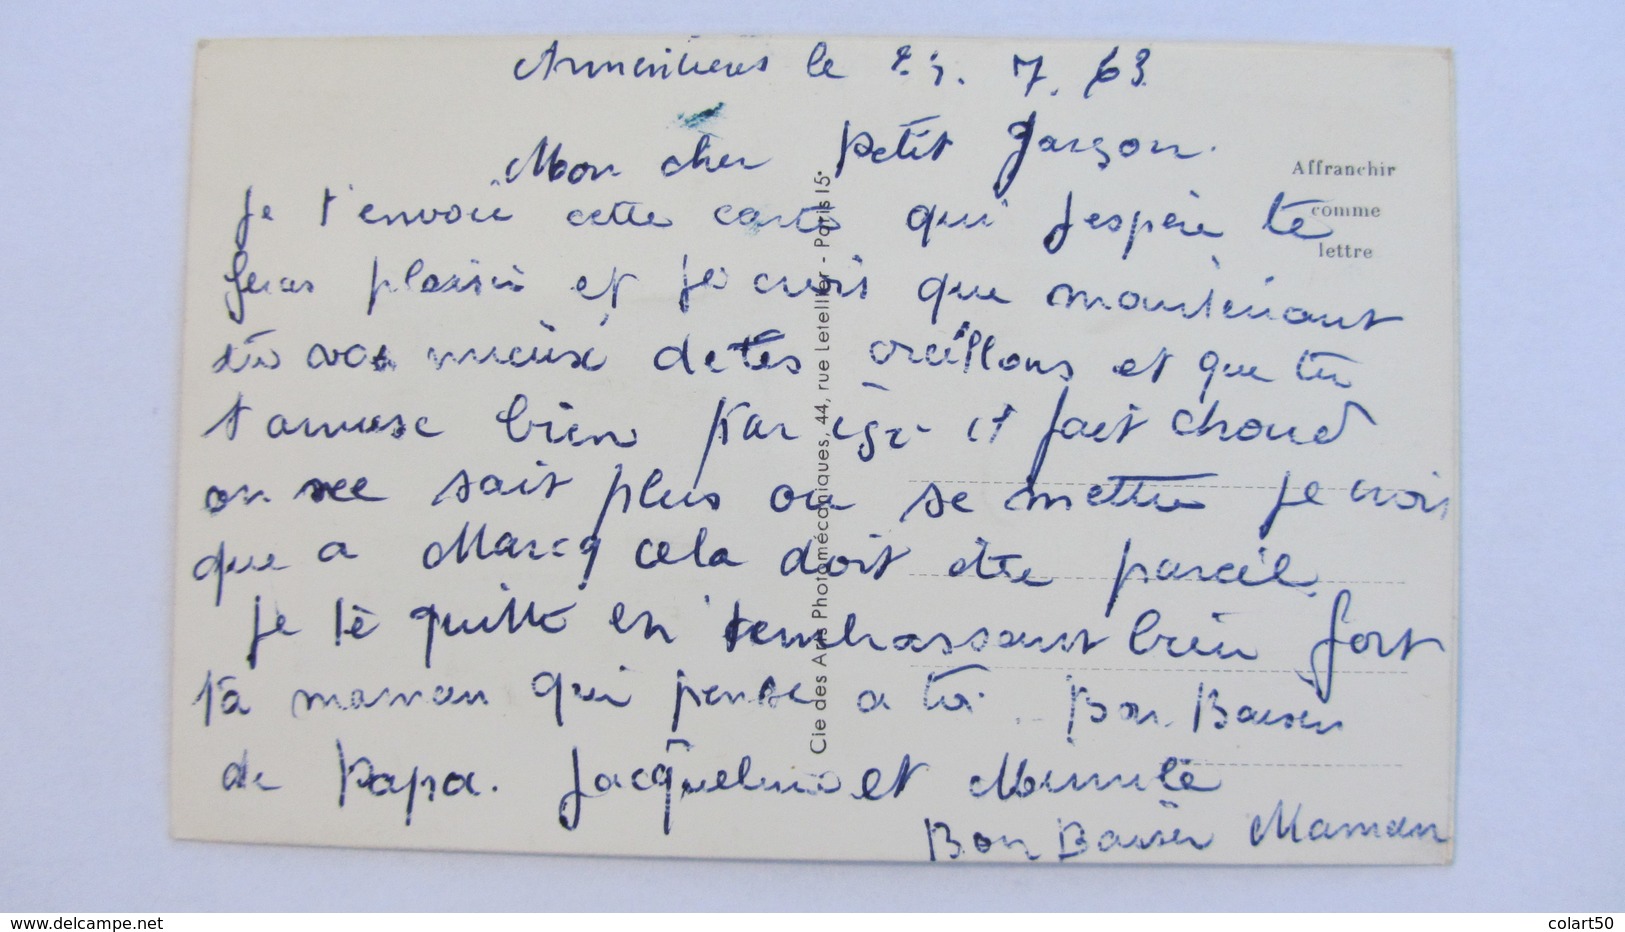 Armentieres le 23. 7. 63
Mon cher petit garçon.
Je t'envoie cette carte qui j'espère te
feras plaisir et je crois que maintenant
tu vas mieux de tes oreillons et que tu
t amuse bien par içi it fait chaud
on ne sait plus ou se mettre je crois
que a Marcq cela doit être pareil
Je te quitte en t'embrassant bien fort
ta maman qui pense a toi. Bon Baiser
de Papa. Jacqueline et Mimile
Bon Baiser Maman
Affranchir
comme
lettre
Cie des Arts Photomécaniques, 44, rue Letellier - Paris 15e
www.delcampe.net
colart50